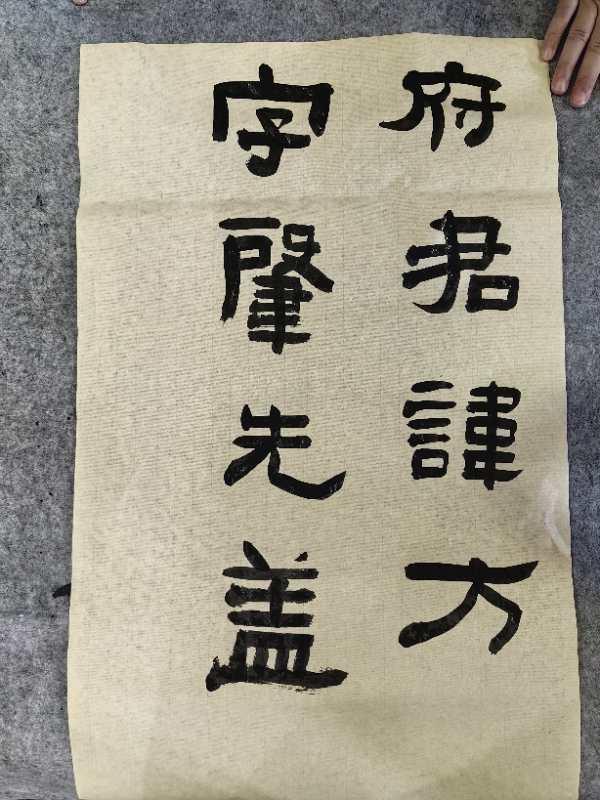 府君諱方
字肇先盖